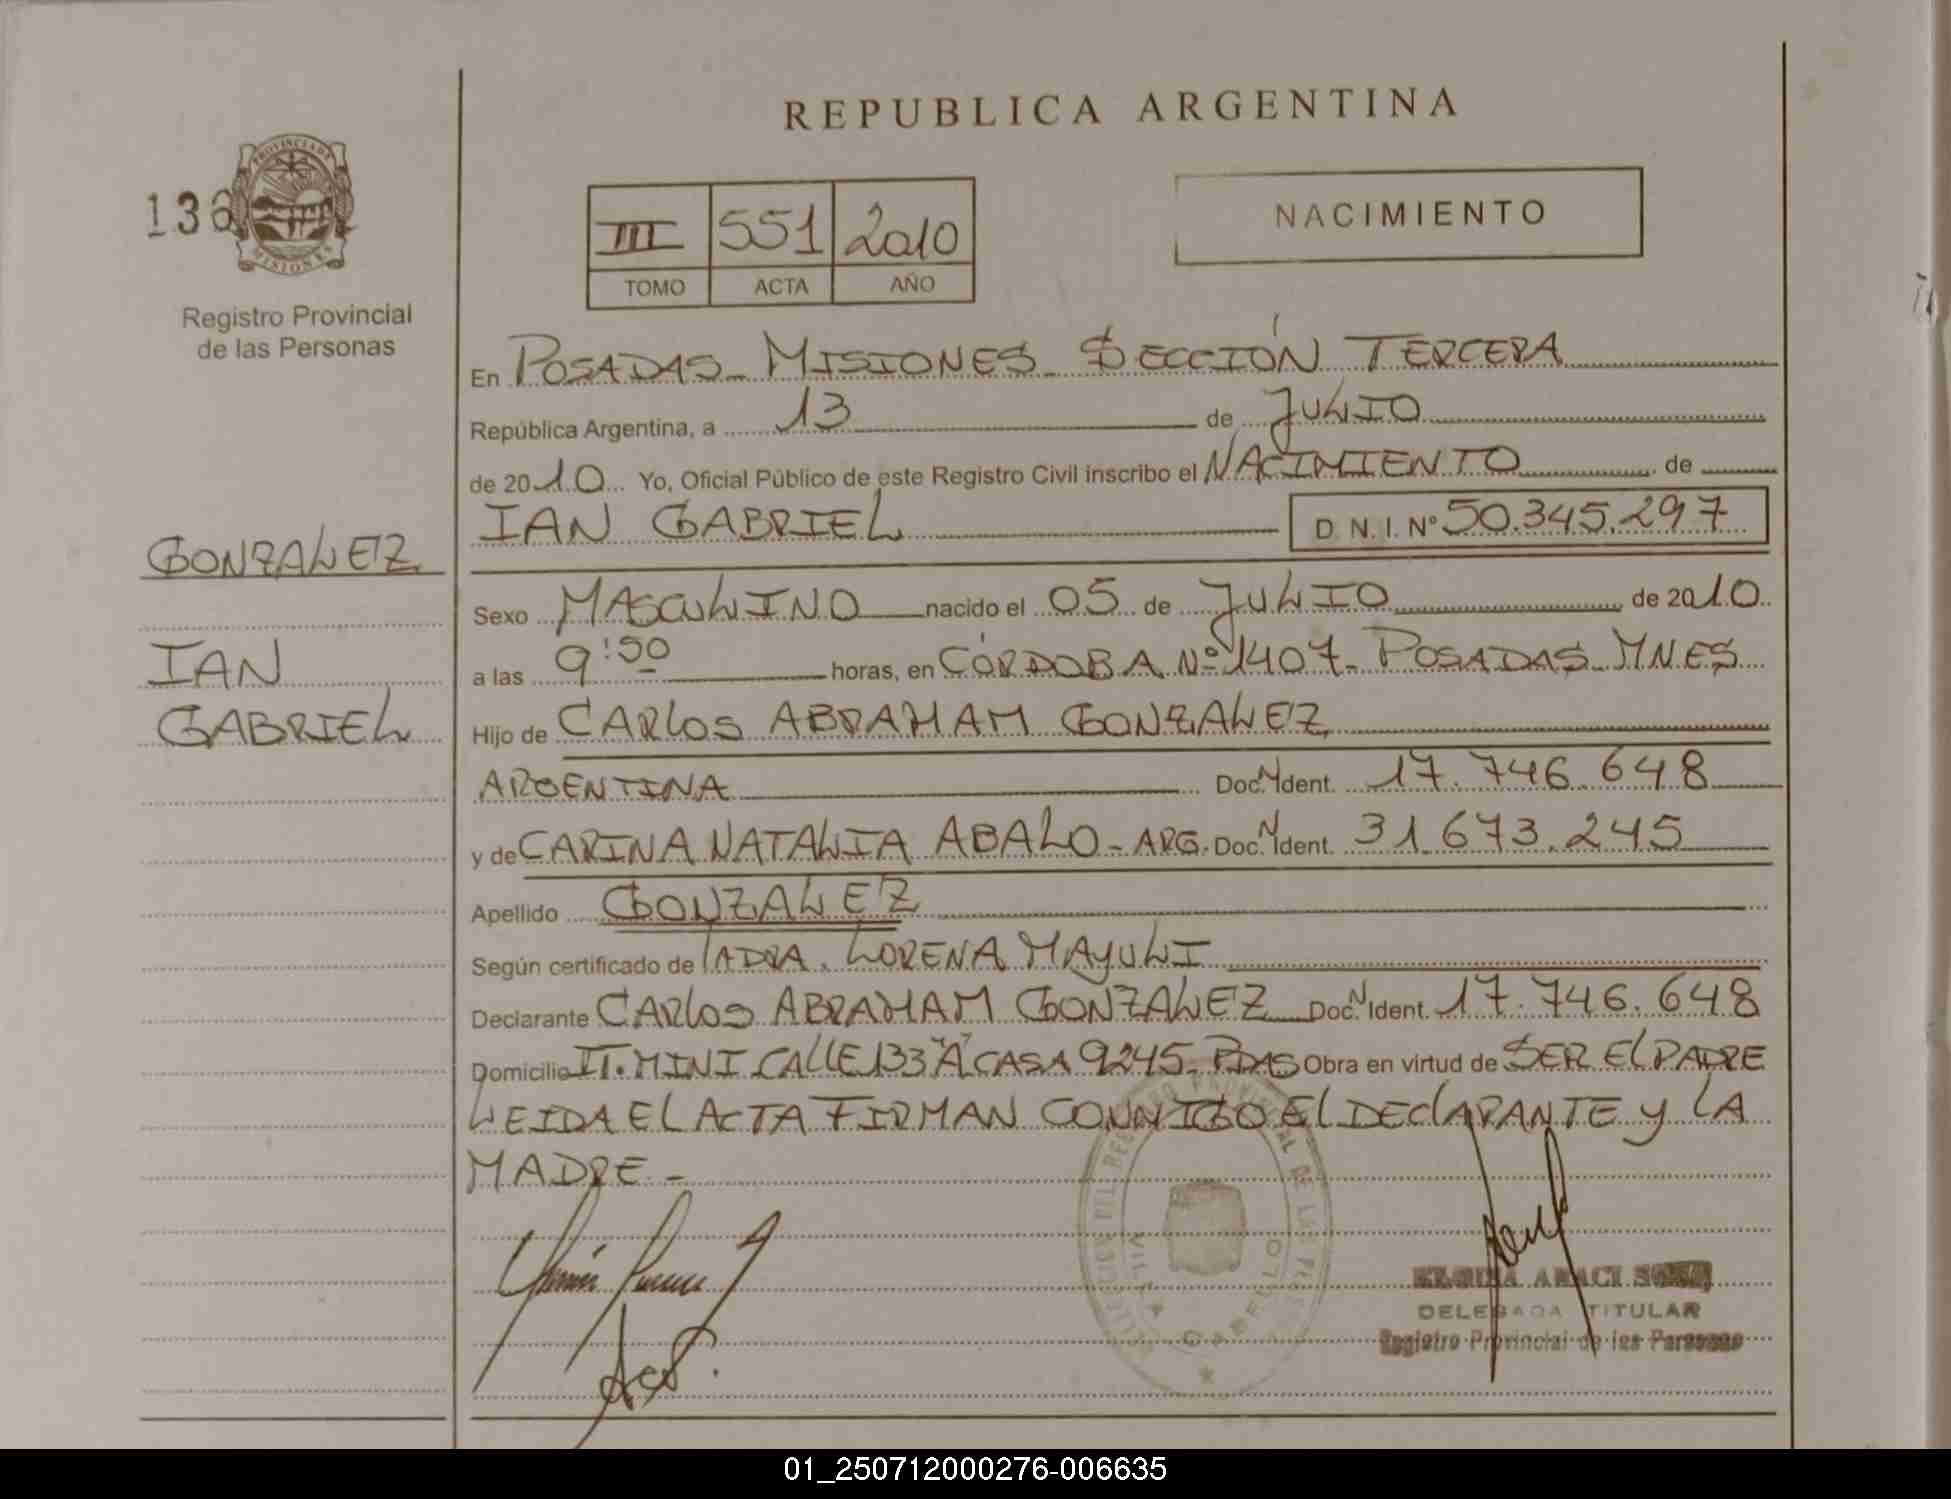 REPUBLICA ARGENTINA
136
PROVINCIA DE MISIONES
Registro Provincial
de las Personas
III 551 2010
TOMO ACTA AÑO
NACIMIENTO
En POSADAS - MISIONES - SECCIÓN TERCERA
República Argentina, a 13 de JULIO
de 2010 Yo, Oficial Público de este Registro Civil inscribo el NACIMIENTO de
IAN GABRIEL D.N.I. Nº 50.345.297
GONZALEZ
IAN
GABRIEL
Sexo MASCULINO nacido el 05 de JULIO de 2010
a las 9:50 horas, en CÓRDOBA Nº 1407 - POSADAS MNES
Hijo de CARLOS ABRAHAM GONZALEZ
ARGENTINA Doc. N Ident. 17.746.648
y de CARINA NATALIA ABALO - ARG. Doc. N Ident. 31.673.245
Apellido GONZALEZ
Según certificado de LA DRA. LORENA MAYULI
Declarante CARLOS ABRAHAM GONZALEZ Doc. N Ident. 17.746.648
Domicilio IT. MINI CALLE 133 "A" CASA 9245 - PDAS Obra en virtud de SER EL PADRE
LEIDA EL ACTA FIRMAN CONMIGO EL DECLARANTE Y LA
MADRE -
ARACI
DELEGADA TITULAR
Registro Provincial de las Personas
VILLA CABELLO
01_250712000276-006635